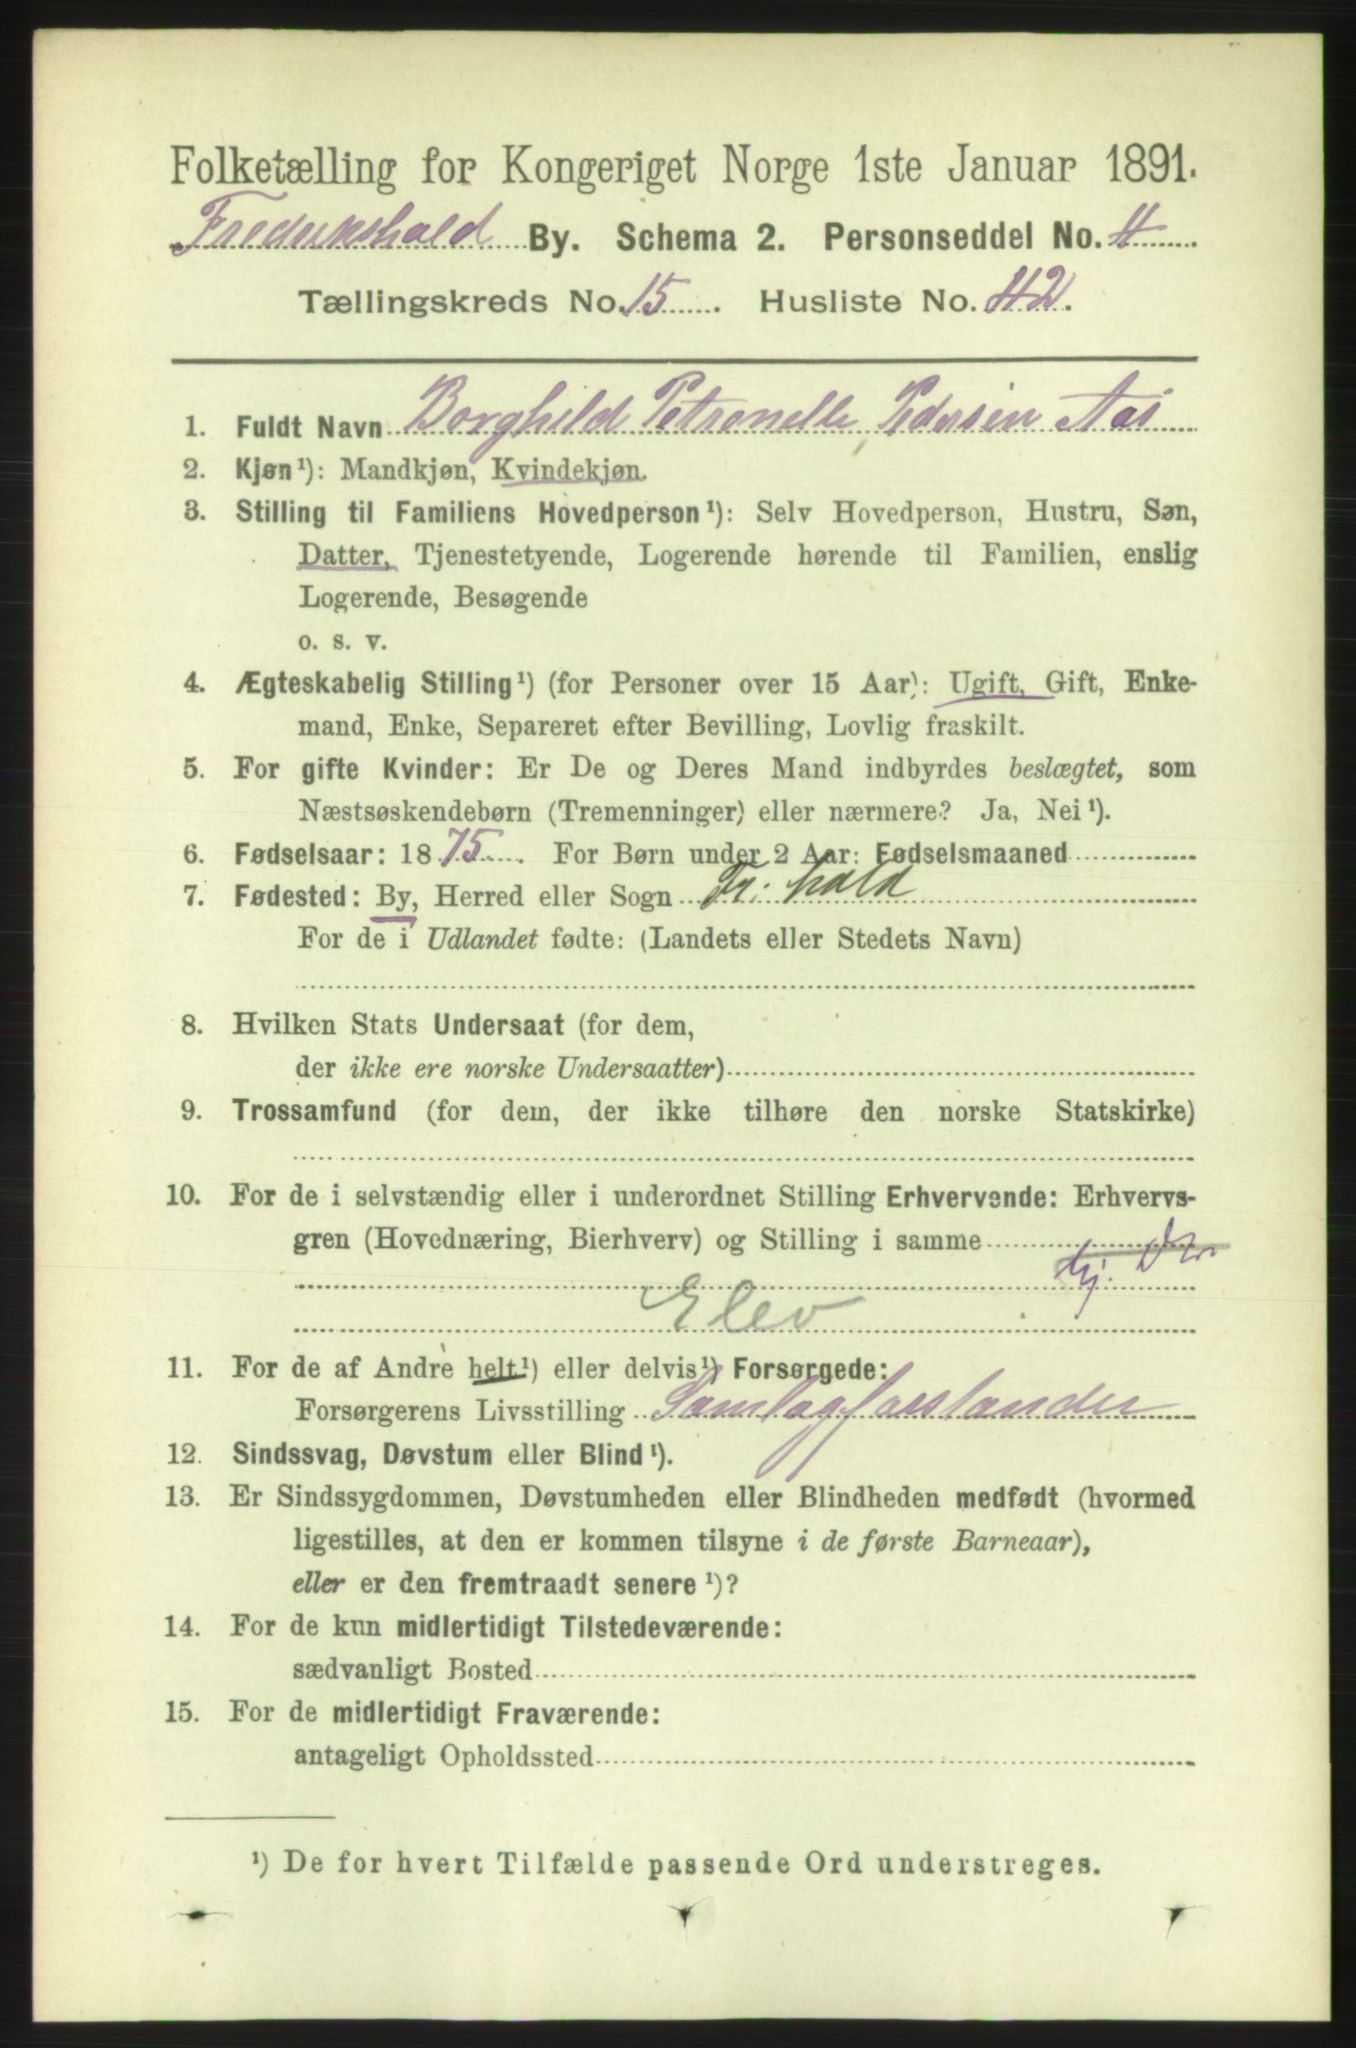 Folketælling for Kongeriget Norge 1ste Januar 1891.
Frederikshald By. Schema 2. Personseddel No. 4
Tællingskreds No. 15. Husliste No. 42.
1. Fuldt Navn Borghild Petronelle Pedersen Aas
2. Kjøn¹): Mandkjøn, Kvindekjøn.
3. Stilling til Familiens Hovedperson¹): Selv Hovedperson, Hustru, Søn,
Datter, Tjenestetyende, Logerende hørende til Familien, enslig
Logerende, Besøgende
o. s. v.
4. Ægteskabelig Stilling¹) (for Personer over 15 Aar): Ugift, Gift, Enke-
mand, Enke, Separeret efter Bevilling, Lovlig fraskilt.
5. For gifte Kvinder: Er De og Deres Mand indbyrdes beslægtet, som
Næstsøskendebørn (Tremenninger) eller nærmere? Ja, Nei¹).
6. Fødselsaar: 1875. For Børn under 2 Aar: Fødselsmaaned
7. Fødested: By, Herred eller Sogn Fr:hald
For de i Udlandet fødte: (Landets eller Stedets Navn)
8. Hvilken Stats Undersaat (for dem,
der ikke ere norske Undersaatter)
9. Trossamfund (for dem, der ikke tilhøre den norske Statskirke)
10. For de i selvstændig eller i underordnet Stilling Erhvervende: Erhvervs-
gren (Hovednæring, Bierhverv) og Stilling i samme
Elev
11. For de af Andre helt¹) eller delvis¹) Forsørgede:
Forsørgerens Livsstilling Samlagforstander
12. Sindssvag, Døvstum eller Blind¹).
13. Er Sindssygdommen, Døvstumheden eller Blindheden medfødt (hvormed
ligestilles, at den er kommen tilsyne i de første Barneaar),
eller er den fremtraadt senere¹)?
14. For de kun midlertidigt Tilstedeværende:
sædvanligt Bosted
15. For de midlertidigt Fraværende:
antageligt Opholdssted
¹) De for hvert Tilfælde passende Ord understreges.